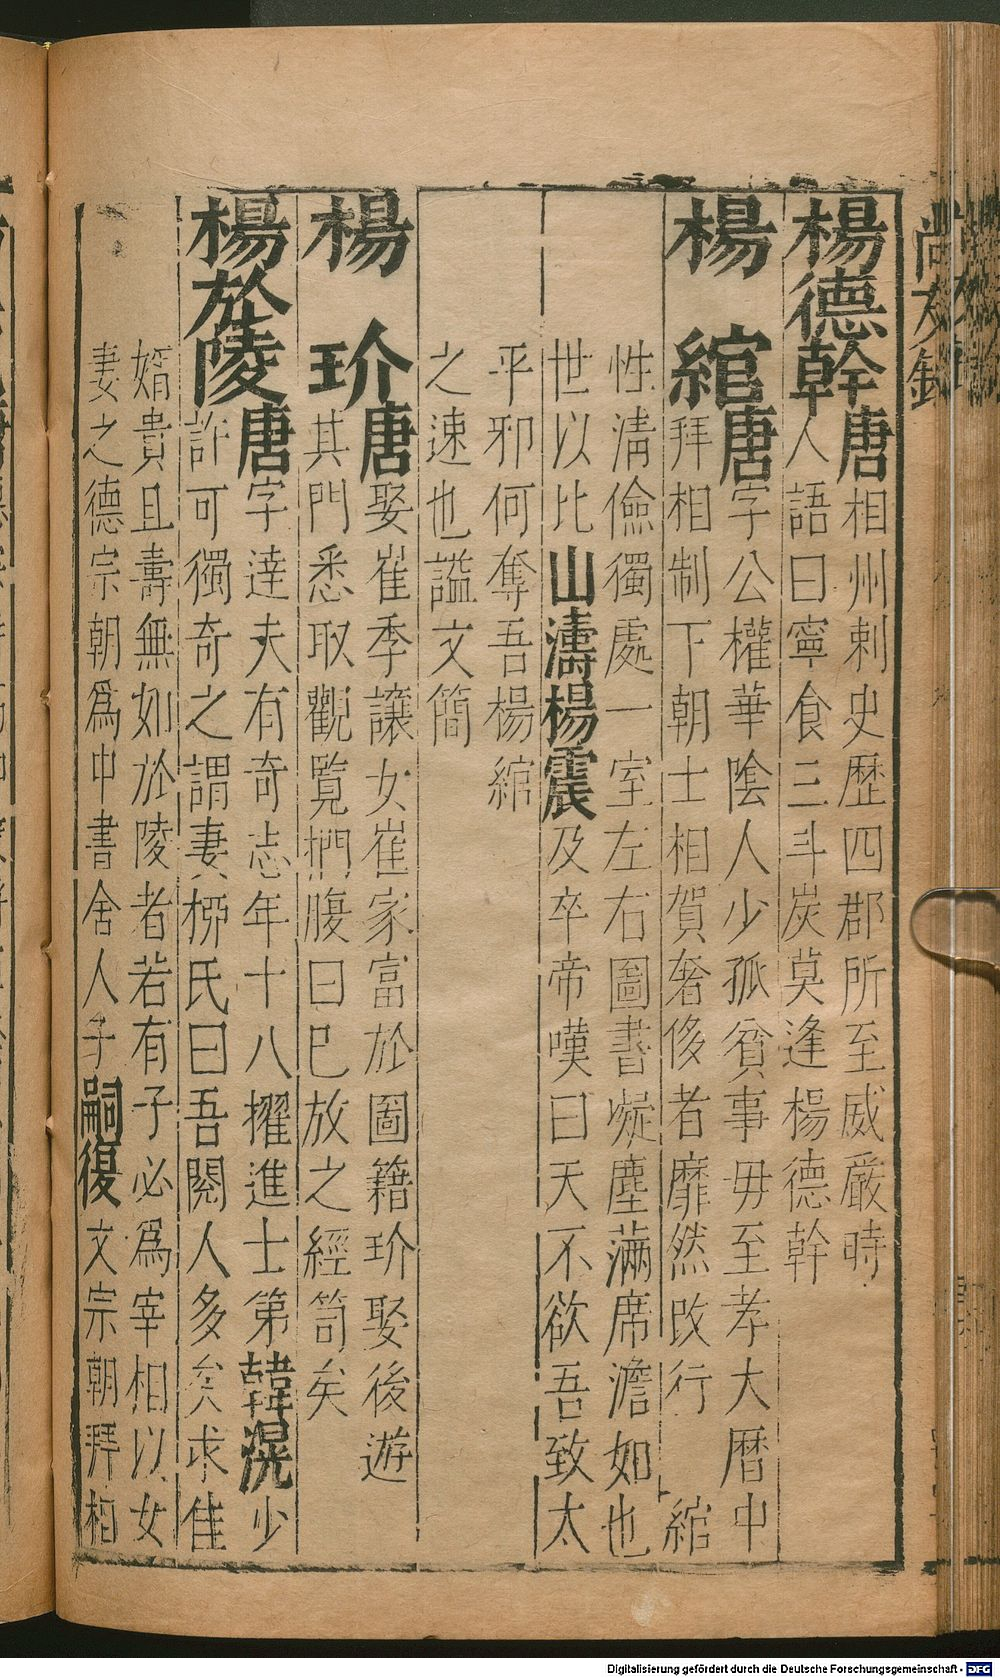 楊德幹唐相州刺史歷四郡所至威嚴時
人語曰寧食三斗炭莫逢楊德幹
楊綰唐字公權華陰人少孤貧事毋至孝大曆中
拜相制下朝士相賀奢侈者靡然改行綰
性清儉獨處一室左右圖書凝塵滿席澹如也
世以比山濤楊震及卒帝嘆曰天不欲吾致太
平邪何奪吾楊綰
之速也謚文簡
楊玠唐娶崔季讓女崔家富於圖籍玠娶後遊
其門悉取觀覽捫腹曰巳放之經笥矣
楊於陵唐字達夫有奇志年十八擢進士第韓滉少
許可獨奇之謂妻柳氏曰吾閱人多矣求佳
婿貴且壽無如於陵者若有子必爲宰相以女
妻之德宗朝爲中書舍人子嗣復文宗朝拜相
尚友錄
Digitalisierung gefördert durch die Deutsche Forschungsgemeinschaft - DFG